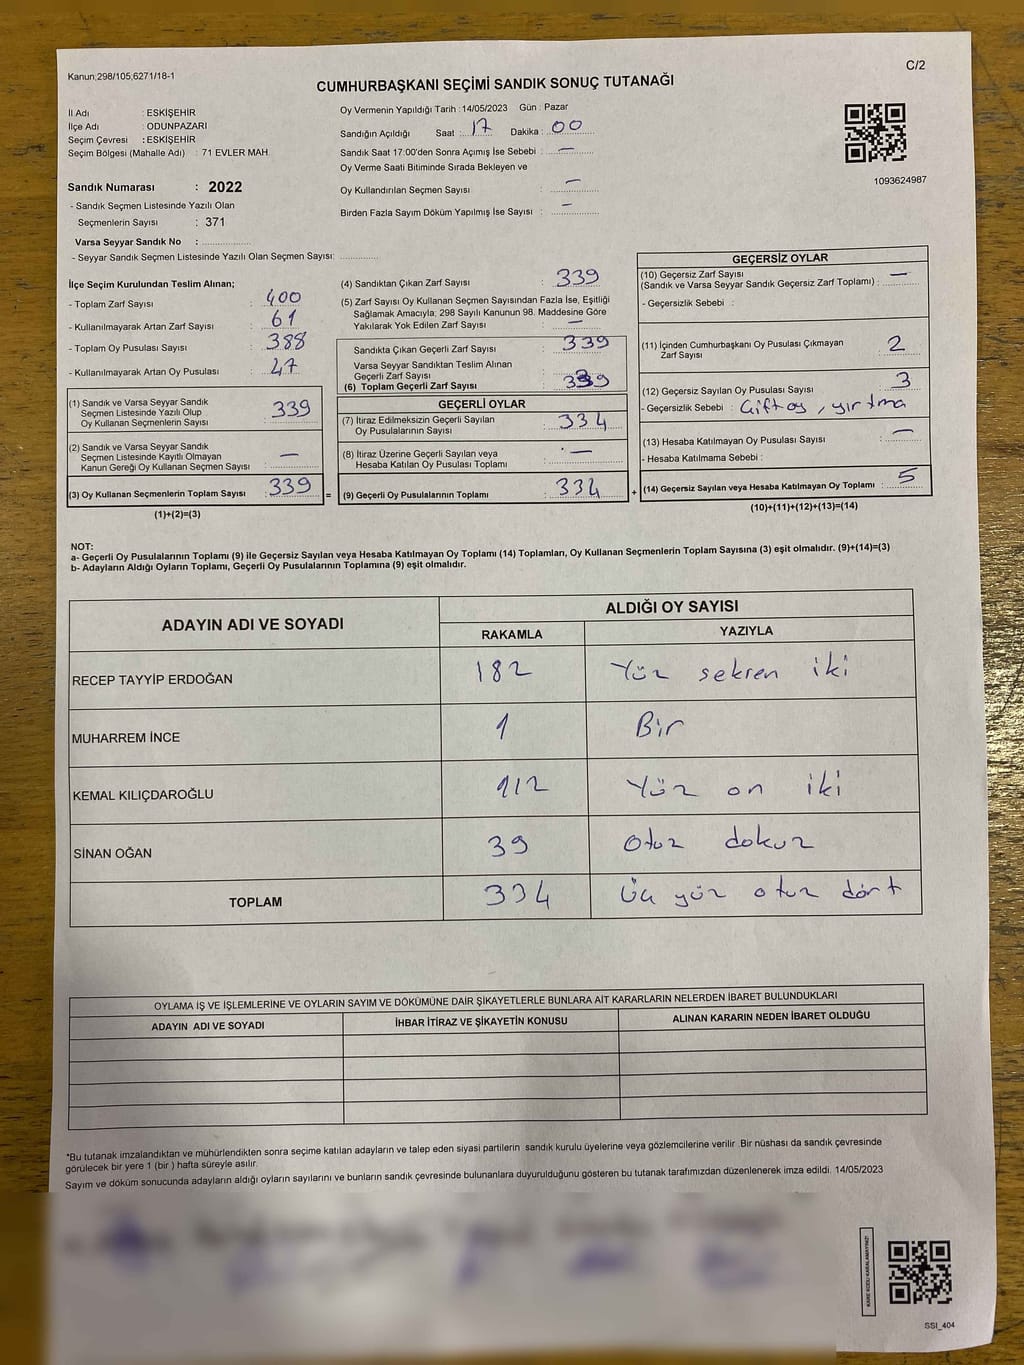 Kanun;298/105;6271/18-1
C/2
CUMHURBAŞKANI SEÇİMİ SANDIK SONUÇ TUTANAĞI
İl Adı : ESKİŞEHİR
İlçe Adı : ODUNPAZARI
Seçim Çevresi : ESKİŞEHİR
Seçim Bölgesi (Mahalle Adı) : 71 EVLER MAH.
Sandık Numarası : 2022
- Sandık Seçmen Listesinde Yazılı Olan
Seçmenlerin Sayısı : 371
Varsa Seyyar Sandık No :
- Seyyar Sandık Seçmen Listesinde Yazılı Olan Seçmen Sayısı:
Oy Vermenin Yapıldığı Tarih : 14/05/2023 Gün : Pazar
Sandığın Açıldığı Saat : 17 Dakika : 00
Sandık Saat 17:00'den Sonra Açımış İse Sebebi : —
Oy Verme Saati Bitiminde Sırada Bekleyen ve
Oy Kullandırılan Seçmen Sayısı : —
Birden Fazla Sayım Döküm Yapılmış İse Sayısı : —
1093624987
İlçe Seçim Kurulundan Teslim Alınan;
- Toplam Zarf Sayısı : 400
- Kullanılmayarak Artan Zarf Sayısı : 61
- Toplam Oy Pusulası Sayısı : 388
- Kullanılmayarak Artan Oy Pusulası : 47
(1) Sandık ve Varsa Seyyar Sandık
Seçmen Listesinde Yazılı Olup
Oy Kullanan Seçmenlerin Sayısı : 339
(2) Sandık ve Varsa Seyyar Sandık
Seçmen Listesinde Kayıtlı Olmayan
Kanun Gereği Oy Kullanan Seçmen Sayısı : —
(3) Oy Kullanan Seçmenlerin Toplam Sayısı : 339
(1)+(2)=(3)
=
(4) Sandıktan Çıkan Zarf Sayısı : 339
(5) Zarf Sayısı Oy Kullanan Seçmen Sayısından Fazla İse, Eşitliği
Sağlamak Amacıyla; 298 Sayılı Kanunun 98. Maddesine Göre
Yakılarak Yok Edilen Zarf Sayısı : —
Sandıkta Çıkan Geçerli Zarf Sayısı : 339
Varsa Seyyar Sandıktan Teslim Alınan
Geçerli Zarf Sayısı :
(6) Toplam Geçerli Zarf Sayısı : 339
GEÇERLİ OYLAR
(7) İtiraz Edilmeksizin Geçerli Sayılan
Oy Pusulalarının Sayısı : 334
(8) İtiraz Üzerine Geçerli Sayılan veya
Hesaba Katılan Oy Pusulası Toplamı : —
(9) Geçerli Oy Pusulalarının Toplamı : 334
+
GEÇERSİZ OYLAR
(10) Geçersiz Zarf Sayısı
(Sandık ve Varsa Seyyar Sandık Geçersiz Zarf Toplamı) : —
- Geçersizlik Sebebi :
(11) İçinden Cumhurbaşkanı Oy Pusulası Çıkmayan
Zarf Sayısı : 2
(12) Geçersiz Sayılan Oy Pusulası Sayısı : 3
- Geçersizlik Sebebi : Çift oy, yırtma
(13) Hesaba Katılmayan Oy Pusulası Sayısı : —
- Hesaba Katılmama Sebebi :
(14) Geçersiz Sayılan veya Hesaba Katılmayan Oy Toplamı : 5
(10)+(11)+(12)+(13)=(14)
NOT:
a- Geçerli Oy Pusulalarının Toplamı (9) ile Geçersiz Sayılan veya Hesaba Katılmayan Oy Toplamı (14) Toplamları, Oy Kullanan Seçmenlerin Toplam Sayısına (3) eşit olmalıdır. (9)+(14)=(3)
b- Adayların Aldığı Oyların Toplamı, Geçerli Oy Pusulalarının Toplamına (9) eşit olmalıdır.
ADAYIN ADI VE SOYADI
ALDIĞI OY SAYISI
RAKAMLA YAZIYLA
RECEP TAYYİP ERDOĞAN 182 Yüz seksen iki
MUHARREM İNCE 1 Bir
KEMAL KILIÇDAROĞLU 112 Yüz on iki
SİNAN OĞAN 39 Otuz dokuz
TOPLAM 334 Üç yüz otuz dört
OYLAMA İŞ VE İŞLEMLERİNE VE OYLARIN SAYIM VE DÖKÜMÜNE DAİR ŞİKAYETLERLE BUNLARA AİT KARARLARIN NELERDEN İBARET BULUNDUKLARI
ADAYIN ADI VE SOYADI İHBAR İTİRAZ VE ŞİKAYETİN KONUSU ALINAN KARARIN NEDEN İBARET OLDUĞU
*Bu tutanak imzalandıktan ve mühürlendikten sonra seçime katılan adayların ve talep eden siyasi partilerin sandık kurulu üyelerine veya gözlemcilerine verilir. Bir nüshası da sandık çevresinde
görülecek bir yere 1 (bir ) hafta süreyle asılır.
Sayım ve döküm sonucunda adayların aldığı oyların sayılarını ve bunların sandık çevresinde bulunanlara duyurulduğunu gösteren bu tutanak tarafımızdan düzenlenerek imza edildi. 14/05/2023
KARE KODU KARALAMAYINIZ!
SSI_404